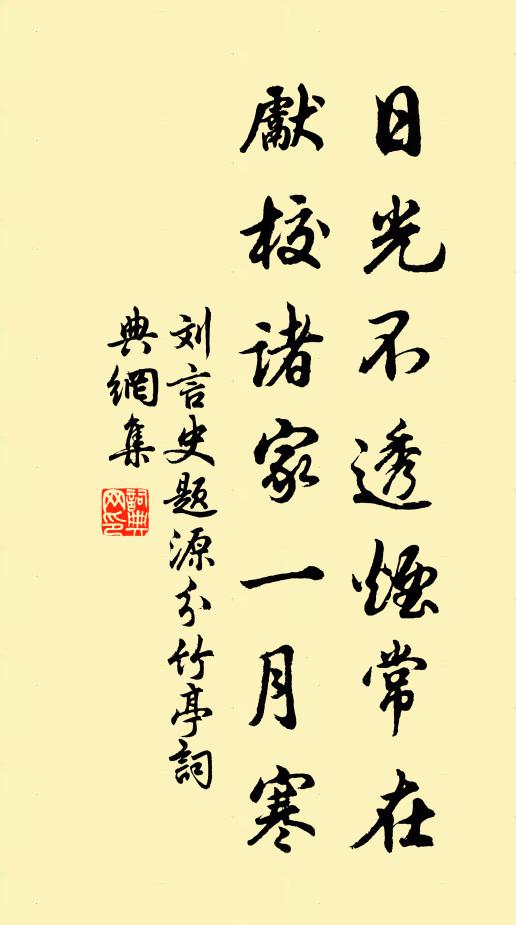 日光不透煙常在
獻校諸家一月寒
刘言史题源分竹亭詞
典網集
詞典网印